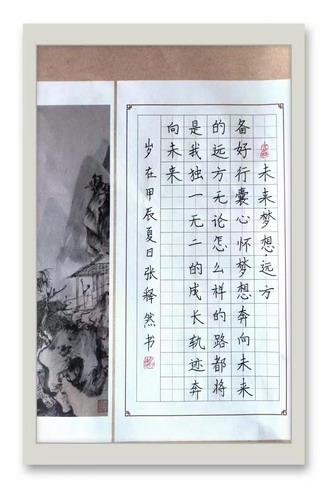 未来梦想·远方
备好行囊心怀梦想奔向未来
的远方无论怎么样的路都将
是我独一无二的成长轨迹奔
向未来
岁在甲辰夏日张释然书